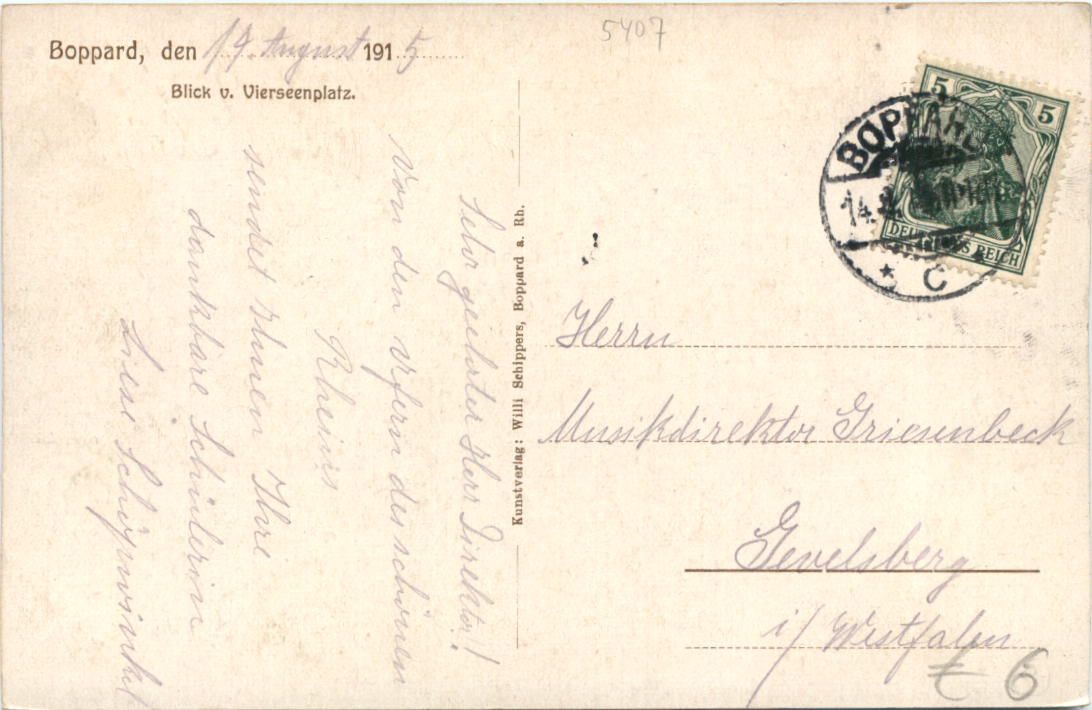 5407
Boppard, den 14 August 1915
Blick v. Vierseenplatz.
Sehr geehrter Herr Direktor!
Von den Ufern des schönen
Rheins
sendet Ihnen Ihre
dankbare Schülerin
Kunstverlag: Willi Schippers, Boppard a. Rh.
5 5
DEUTSCHES REICH
BOPPARD
14.8.
* C
Herrn
Musikdirektor Griesenbeck
Gevelsberg
i/ Westfalen
€ 6